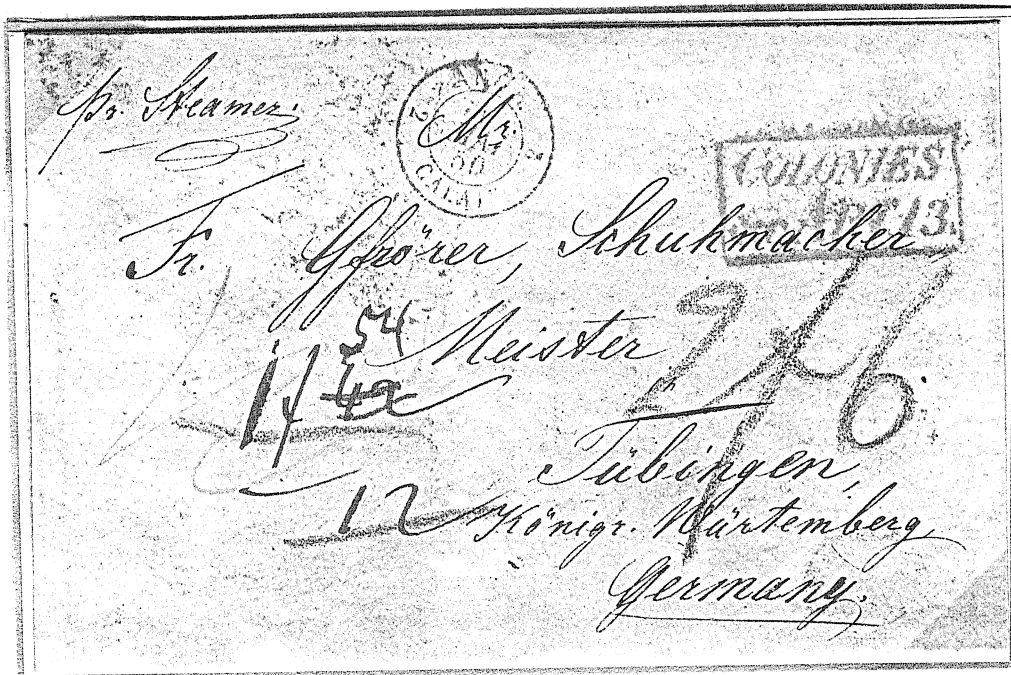 pr. Steamer.
Mr.
2
MAI
50
2
CALAI
COLONIES
ART 13.
Fr. Gfrörer, Schuhmacher
Meister
54
1/ 42
2/6
12
Tübingen,
Königr. Würtemberg,
Germany.